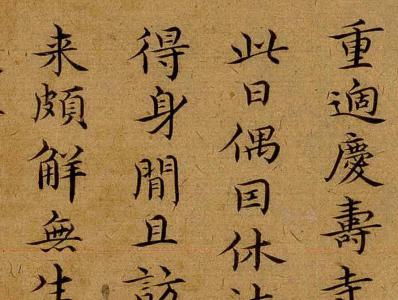 重過慶壽寺
此日偶因休
得身間且訪
来頗觧無生